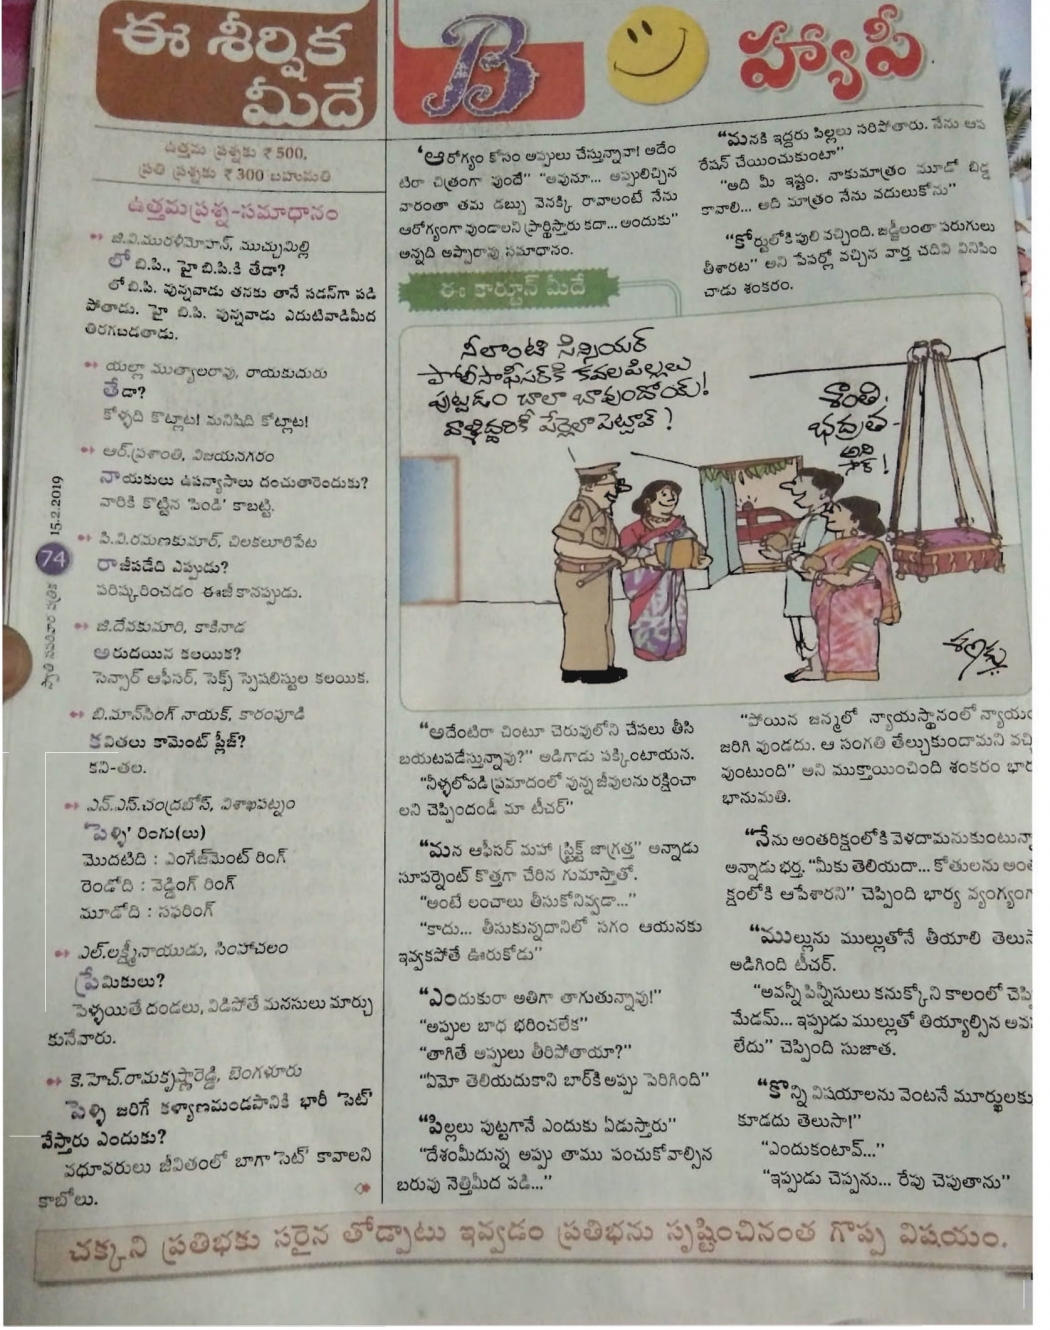 ఈ శీర్షిక
మీదే
ఉత్తమ ప్రశ్నకు ₹ 500,
ప్రతి ప్రశ్నకు ₹ 300 బహుమతి
ఉత్తమప్రశ్న-సమాధానం
జి.వి.మురళీమోహన్, ముచ్చుమిల్లి
లో బి.పి., హై బి.పి.కి తేడా?
లో బి.పి. వున్నవాడు తనకు తానే సడన్‌గా పడి
పోతాడు. హై బి.పి. వున్నవాడు ఎదుటివాడిమీద
తిరగబడతాడు.
యల్లా ముత్యాలరావు, రాయకుదురు
తేడా?
కోళ్ళది కొట్లాట! మనిషిది కోట్లాట!
ఆర్.ప్రశాంతి, విజయనగరం
నాయకులు ఉపన్యాసాలు దంచుతారెందుకు?
వారికి కొట్టిన 'పిండి' కాబట్టి.
పి.వి.రమణకుమార్, చిలకలూరిపేట
రాజీపడేది ఎప్పుడు?
పరిష్కరించడం ఈజీ కానప్పుడు.
జి.దేవకుమారి, కాకినాడ
అరుదయిన కలయిక?
సెన్సార్ ఆఫీసర్, సెక్స్ స్పెషలిస్టుల కలయిక.
బి.మాన్‌సింగ్ నాయక్, కారంపూడి
కవితలు కామెంట్ ప్లీజ్?
కవి-తల.
ఎన్.ఎస్.చంద్రబోస్, విశాఖపట్నం
'పెళ్ళి' రింగు(లు)
మొదటిది : ఎంగేజ్‌మెంట్ రింగ్
రెండోది : వెడ్డింగ్ రింగ్
మూడోది : సఫరింగ్
ఎల్.లక్ష్మీనాయుడు, సింహాచలం
ప్రేమికులు?
పెళ్ళయితే దండలు, విడిపోతే మనసులు మార్చు
కునేవారు.
కె.హెచ్.రామకృష్ణారెడ్డి, బెంగళూరు
పెళ్ళి జరిగే కళ్యాణమండపానికి భారీ 'సెట్'
వేస్తారు ఎందుకు?
వధూవరులు జీవితంలో బాగా 'సెట్' కావాలని
కాబోలు.
15.2.2019
74
స్వాతి సపరివార పత్రిక
B హ్యాపీ
'ఆరోగ్యం కోసం అప్పులు చేస్తున్నావా! అదేం
టిరా చిత్రంగా వుందే" "అవునూ... అప్పులిచ్చిన
వారంతా తమ డబ్బు వెనక్కి రావాలంటే నేను
ఆరోగ్యంగా వుండాలని ప్రార్థిస్తారు కదా... అందుకు"
అన్నది అప్పారావు సమాధానం.
"మనకి ఇద్దరు పిల్లలు సరిపోతారు. నేను ఆప
రేషన్ చేయించుకుంటా"
"అది మీ ఇష్టం. నాకుమాత్రం మూడో బిడ్డ
కావాలి... అది మాత్రం నేను వదులుకోను"
"కోర్టులోకి పులి వచ్చింది. జడ్జీలంతా పరుగులు
తీశారట" అని పేపర్లో వచ్చిన వార్త చదివి వినిపిం
చాడు శంకరం.
ఈ కార్టూన్ మీదే
నీలాంటి సిన్సియర్
పోలీసాఫీసర్‌కి కవలపిల్లలు
పుట్టడం చాలా బావుందోయ్!
వాళ్ళిద్దరికీ పేర్లెలా పెట్టావ్?
శాంతి,
భద్రత-
అని
సార్!
"అదేంటిరా చింటూ చెరువులోని చేపలు తీసి
బయటపడేస్తున్నావు?" అడిగాడు పక్కింటాయన.
"నీళ్ళలోపడి ప్రమాదంలో వున్న జీవులను రక్షించా
లని చెప్పిందండీ మా టీచర్"
"మన ఆఫీసర్ మహా స్ట్రిక్ట్ జాగ్రత్త" అన్నాడు
సూపర్నెంట్ కొత్తగా చేరిన గుమాస్తాతో.
"అంటే లంచాలు తీసుకోనివ్వడా..."
"కాదు... తీసుకున్నదానిలో సగం ఆయనకు
ఇవ్వకపోతే ఊరుకోడు"
"ఎందుకురా అతిగా తాగుతున్నావు!"
"అప్పుల బాధ భరించలేక"
"తాగితే అప్పులు తీరిపోతాయా?"
"ఏమో తెలియదుకాని బార్‌కి అప్పు పెరిగింది"
"పిల్లలు పుట్టగానే ఎందుకు ఏడుస్తారు"
"దేశంమీదున్న అప్పు తాము పంచుకోవాల్సిన
బరువు నెత్తిమీద పడి..."
"పోయిన జన్మలో న్యాయస్థానంలో న్యాయం
జరిగి వుండదు. ఆ సంగతి తేల్చుకుందామని వచ్చి
వుంటుంది" అని ముక్తాయించింది శంకరం భార
భానుమతి.
"నేను అంతరిక్షంలోకి వెళదామనుకుంటున్నా
అన్నాడు భర్త. "మీకు తెలియదా... కోతులను అంత
క్షంలోకి ఆపేశారని" చెప్పింది భార్య వ్యంగ్యంగా
"ముల్లును ముల్లుతోనే తీయాలి తెలుస
అడిగింది టీచర్.
"అవన్నీ పిన్నీసులు కనుక్కోని కాలంలో చెప్పి
మేడమ్... ఇప్పుడు ముల్లుతో తియ్యాల్సిన అవస
లేదు" చెప్పింది సుజాత.
"కొన్ని విషయాలను వెంటనే మూర్ఖులకు
కూడదు తెలుసా!"
"ఎందుకంటావ్..."
"ఇప్పుడు చెప్పను... రేపు చెపుతాను"
చక్కని ప్రతిభకు సరైన తోడ్పాటు ఇవ్వడం ప్రతిభను సృష్టించినంత గొప్ప విషయం.